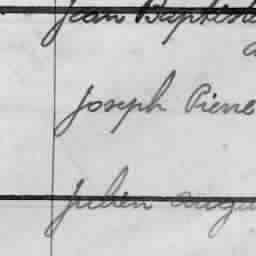 Jean Baptiste
Joseph Pierre
Julien